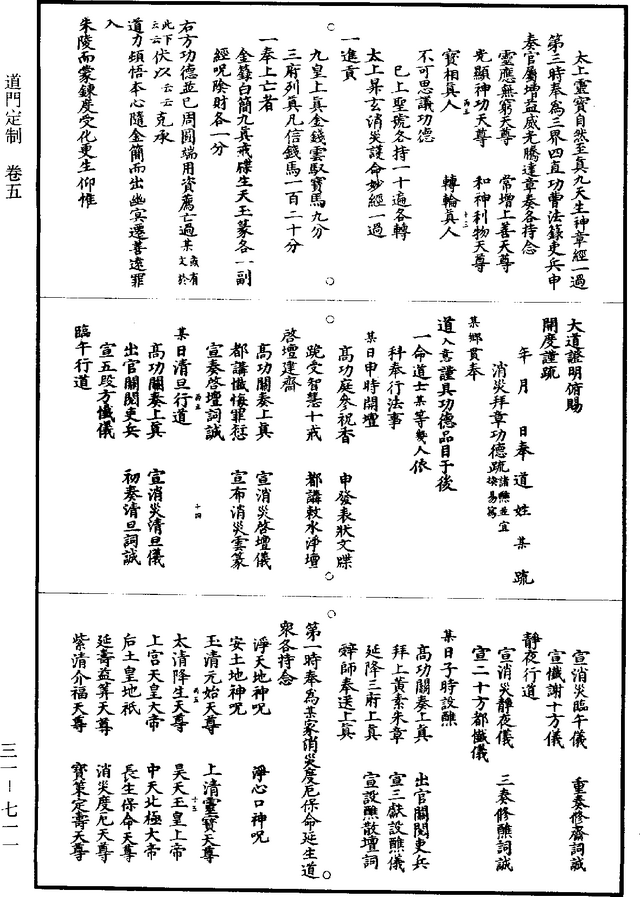 太上靈寶自然至真九天生神章經一過
第三時奉為三界四直功曹法籙吏兵申
奏官屬增益威光騰達章奏各持念
靈應無窮天尊　常增上善天尊
光顯神功天尊　和神利物天尊
寶相真人　轉輪真人
不可思議功德
已上聖號各持一十遍各轉
太上昇玄消災護命妙經一過
一進貢
九皇上真金錢雲馭寶馬九分
三府列真凡信錢馬一百二十分
一奉上亡者
金籙白簡九真戒牒生天玉篆各一副
經呪除財各一分
右方功德並已周圓端用資薦亡過某或有文於
此下云云伏以云云克承
道力頓悟本心隨金簡而出幽冥遷善遠罪
入
朱陵而蒙鍊度受化更生仰惟
大道證明俯賜
開度謹疏
年　月　日奉道姓某疏
消災拜章功德疏諸醮並宜換易寫
某鄉貫奉
道入意謹具功德品目于後
一命道士某等幾人依
科奉行法事
某日申時開壇
高功庭參祝香　申發表狀文牒
跪受智慧十戒　都講敕水淨壇
啓壇建齋
高功關奏上真　宣消災啓壇儀
都講懺悔罪愆　宣布消災雲篆
宣奏啓壇詞誠
某日清旦行道
高功關奏上真　宣消災清旦儀
出官關閱吏兵　初奏清旦詞誠
宣五股方懺儀
臨午行道
宣消災臨午儀　重奏修齋詞誠
宣懺謝十方儀
靜夜行道
宣消災靜夜儀　三奏修醮詞誠
宣二十方都懺儀
某日子時設醮
高功關奏上真　出官關閱吏兵
拜上黃素朱章　宣三獻設醮儀
延降三府上真　宣設醮散壇詞
辭師奉送上真
第一時奉為某家消災度厄保命延生道
衆各持念
淨天地神呪　淨心口神呪
安土地神呪
玉清元始天尊　上清靈寶天尊
太清降生天尊　昊天玉皇上帝
上宮天皇大帝　中天北極大帝
后土皇地祇　長生保命天尊
延壽益筭天尊　消災度厄天尊
紫清介福天尊　寶策定壽天尊
道門定制　卷五
三一－七一一